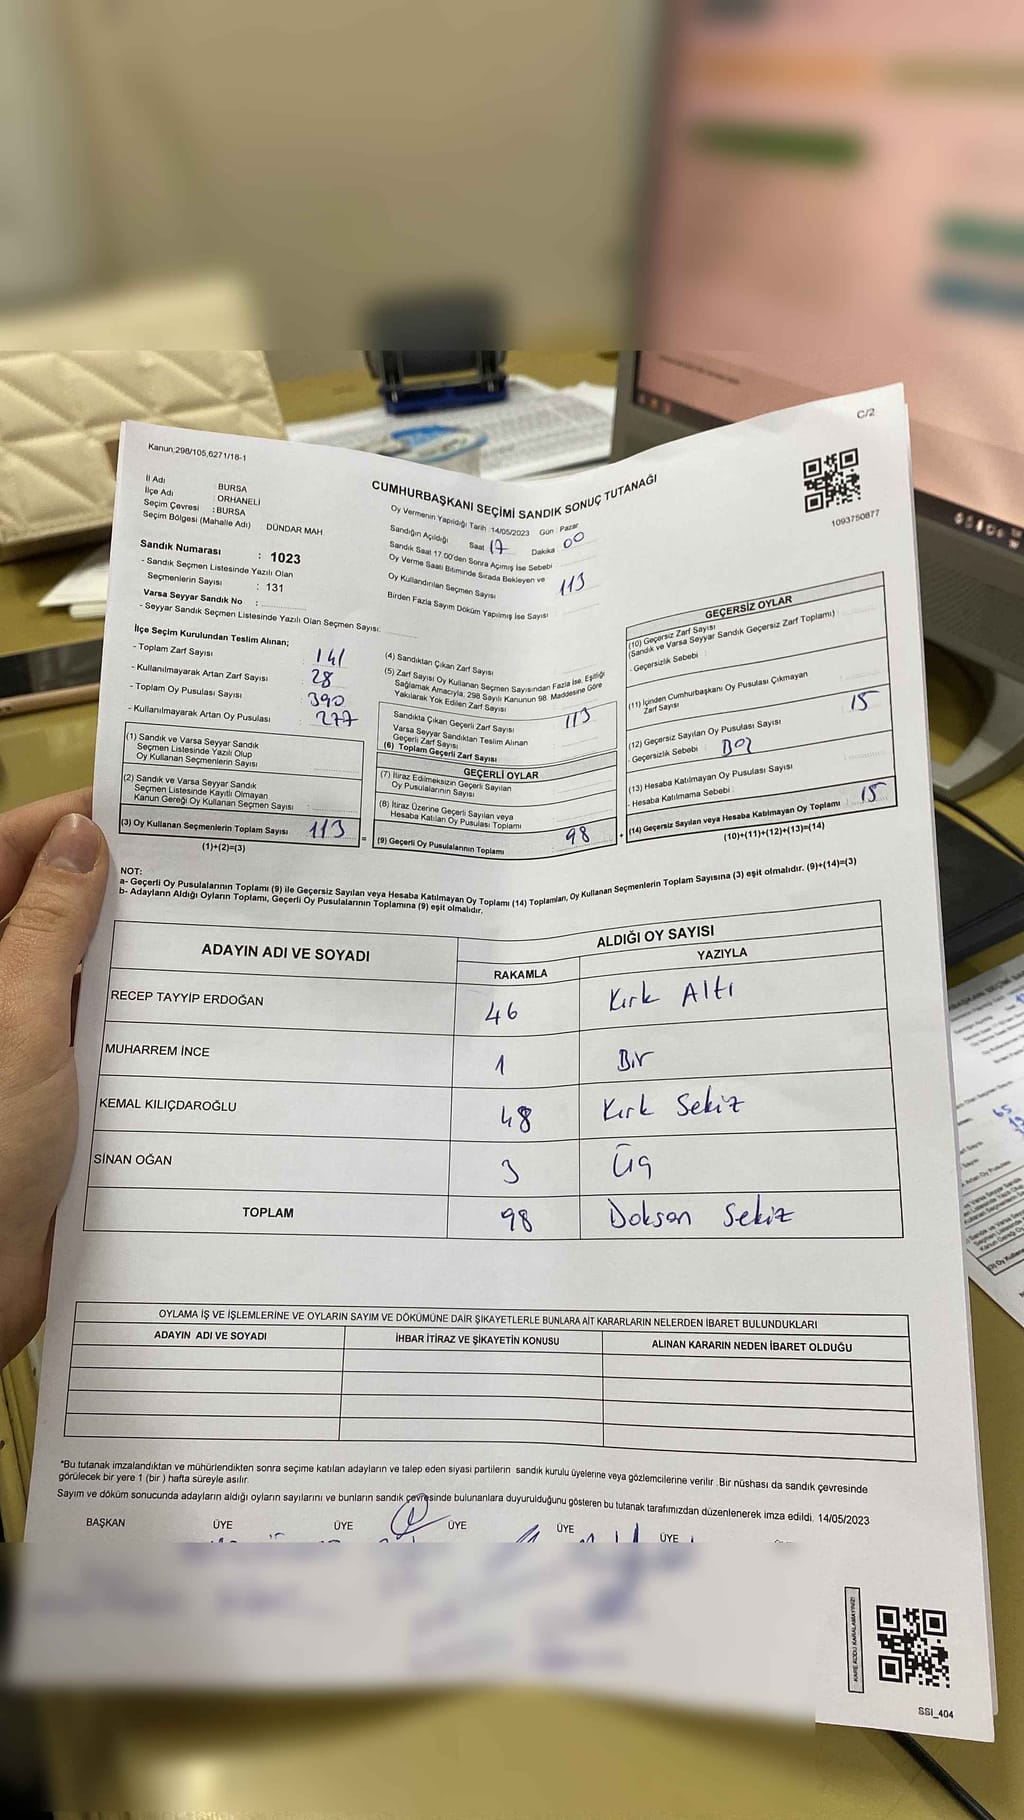 C/2
Kanun:298/105,6271/16-1
CUMHURBAŞKANI SEÇİMİ SANDIK SONUÇ TUTANAĞI
1093750877
İl Adı : BURSA
İlçe Adı : ORHANELİ
Seçim Çevresi : BURSA
Seçim Bölgesi (Mahalle Adı) : DÜNDAR MAH
Sandık Numarası : 1023
- Sandık Seçmen Listesinde Yazılı Olan
Seçmenlerin Sayısı : 131
Varsa Seyyar Sandık No :
- Seyyar Sandık Seçmen Listesinde Yazılı Olan Seçmen Sayısı:
Oy Vermenin Yapıldığı Tarih : 14/05/2023 Gün : Pazar
Sandığın Açıldığı Saat 17 Dakika 00
Sandık Saat 17.00'den Sonra Açılmış İse Sebebi
Oy Verme Saati Bitiminde Sırada Bekleyen ve
Oy Kullandırılan Seçmen Sayısı 113
Birden Fazla Sayım Döküm Yapılmış İse Sayısı
İlçe Seçim Kurulundan Teslim Alınan;
- Toplam Zarf Sayısı : 141
- Kullanılmayarak Artan Zarf Sayısı : 28
- Toplam Oy Pusulası Sayısı : 390
- Kullanılmayarak Artan Oy Pusulası : 277
(1) Sandık ve Varsa Seyyar Sandık
Seçmen Listesinde Yazılı Olup
Oy Kullanan Seçmenlerin Sayısı
(2) Sandık ve Varsa Seyyar Sandık
Seçmen Listesinde Kayıtlı Olmayan
Kanun Gereği Oy Kullanan Seçmen Sayısı
(3) Oy Kullanan Seçmenlerin Toplam Sayısı 113
(1)+(2)=(3)
=
(4) Sandıktan Çıkan Zarf Sayısı
(5) Zarf Sayısı Oy Kullanan Seçmen Sayısından Fazla İse, Eşitliği
Sağlamak Amacıyla, 298 Sayılı Kanunun 98. Maddesine Göre
Yakılarak Yok Edilen Zarf Sayısı
Sandıkta Çıkan Geçerli Zarf Sayısı 113
Varsa Seyyar Sandıktan Teslim Alınan
Geçerli Zarf Sayısı
(6) Toplam Geçerli Zarf Sayısı
GEÇERLİ OYLAR
(7) İtiraz Edilmeksizin Geçerli Sayılan
Oy Pusulalarının Sayısı
(8) İtiraz Üzerine Geçerli Sayılan veya
Hesaba Katılan Oy Pusulası Toplamı
(9) Geçerli Oy Pusulalarının Toplamı 98
+
GEÇERSİZ OYLAR
(10) Geçersiz Zarf Sayısı
(Sandık ve Varsa Seyyar Sandık Geçersiz Zarf Toplamı) :
- Geçersizlik Sebebi :
(11) İçinden Cumhurbaşkanı Oy Pusulası Çıkmayan
Zarf Sayısı
(12) Geçersiz Sayılan Oy Pusulası Sayısı 15
- Geçersizlik Sebebi : Boş
(13) Hesaba Katılmayan Oy Pusulası Sayısı
- Hesaba Katılmama Sebebi :
(14) Geçersiz Sayılan veya Hesaba Katılmayan Oy Toplamı 15
(10)+(11)+(12)+(13)=(14)
NOT:
a- Geçerli Oy Pusulalarının Toplamı (9) ile Geçersiz Sayılan veya Hesaba Katılmayan Oy Toplamı (14) Toplamları, Oy Kullanan Seçmenlerin Toplam Sayısına (3) eşit olmalıdır. (9)+(14)=(3)
b- Adayların Aldığı Oyların Toplamı, Geçerli Oy Pusulalarının Toplamına (9) eşit olmalıdır.
ADAYIN ADI VE SOYADI ALDIĞI OY SAYISI
RAKAMLA YAZIYLA
RECEP TAYYİP ERDOĞAN 46 Kırk Altı
MUHARREM İNCE 1 Bir
KEMAL KILIÇDAROĞLU 48 Kırk Sekiz
SİNAN OĞAN 3 Üç
TOPLAM 98 Doksan Sekiz
OYLAMA İŞ VE İŞLEMLERİNE VE OYLARIN SAYIM VE DÖKÜMÜNE DAİR ŞİKAYETLERLE BUNLARA AİT KARARLARIN NELERDEN İBARET BULUNDUKLARI
ADAYIN ADI VE SOYADI İHBAR İTİRAZ VE ŞİKAYETİN KONUSU ALINAN KARARIN NEDEN İBARET OLDUĞU
*Bu tutanak imzalandıktan ve mühürlendikten sonra seçime katılan adayların ve talep eden siyasi partilerin sandık kurulu üyelerine veya gözlemcilerine verilir .Bir nüshası da sandık çevresinde
görülecek bir yere 1 (bir ) hafta süreyle asılır.
Sayım ve döküm sonucunda adayların aldığı oyların sayılarını ve bunların sandık çevresinde bulunanlara duyurulduğunu gösteren bu tutanak tarafımızdan düzenlenerek imza edildi. 14/05/2023
BAŞKAN ÜYE ÜYE ÜYE ÜYE ÜYE
KARE KODU KARALAMAYINIZ!
SSI_404